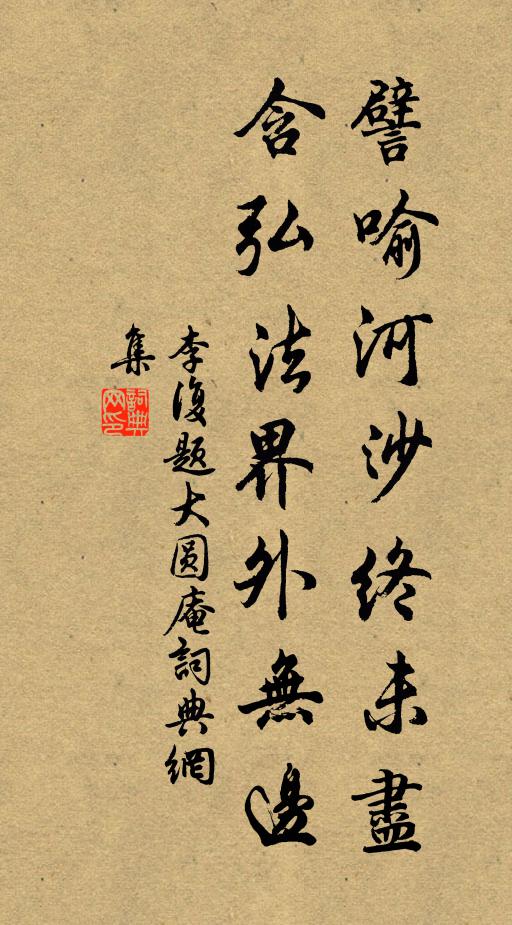 譬喻河沙終未盡
含弘法界外無邊
李復題大圓庵詞典網
集
詞典
网印